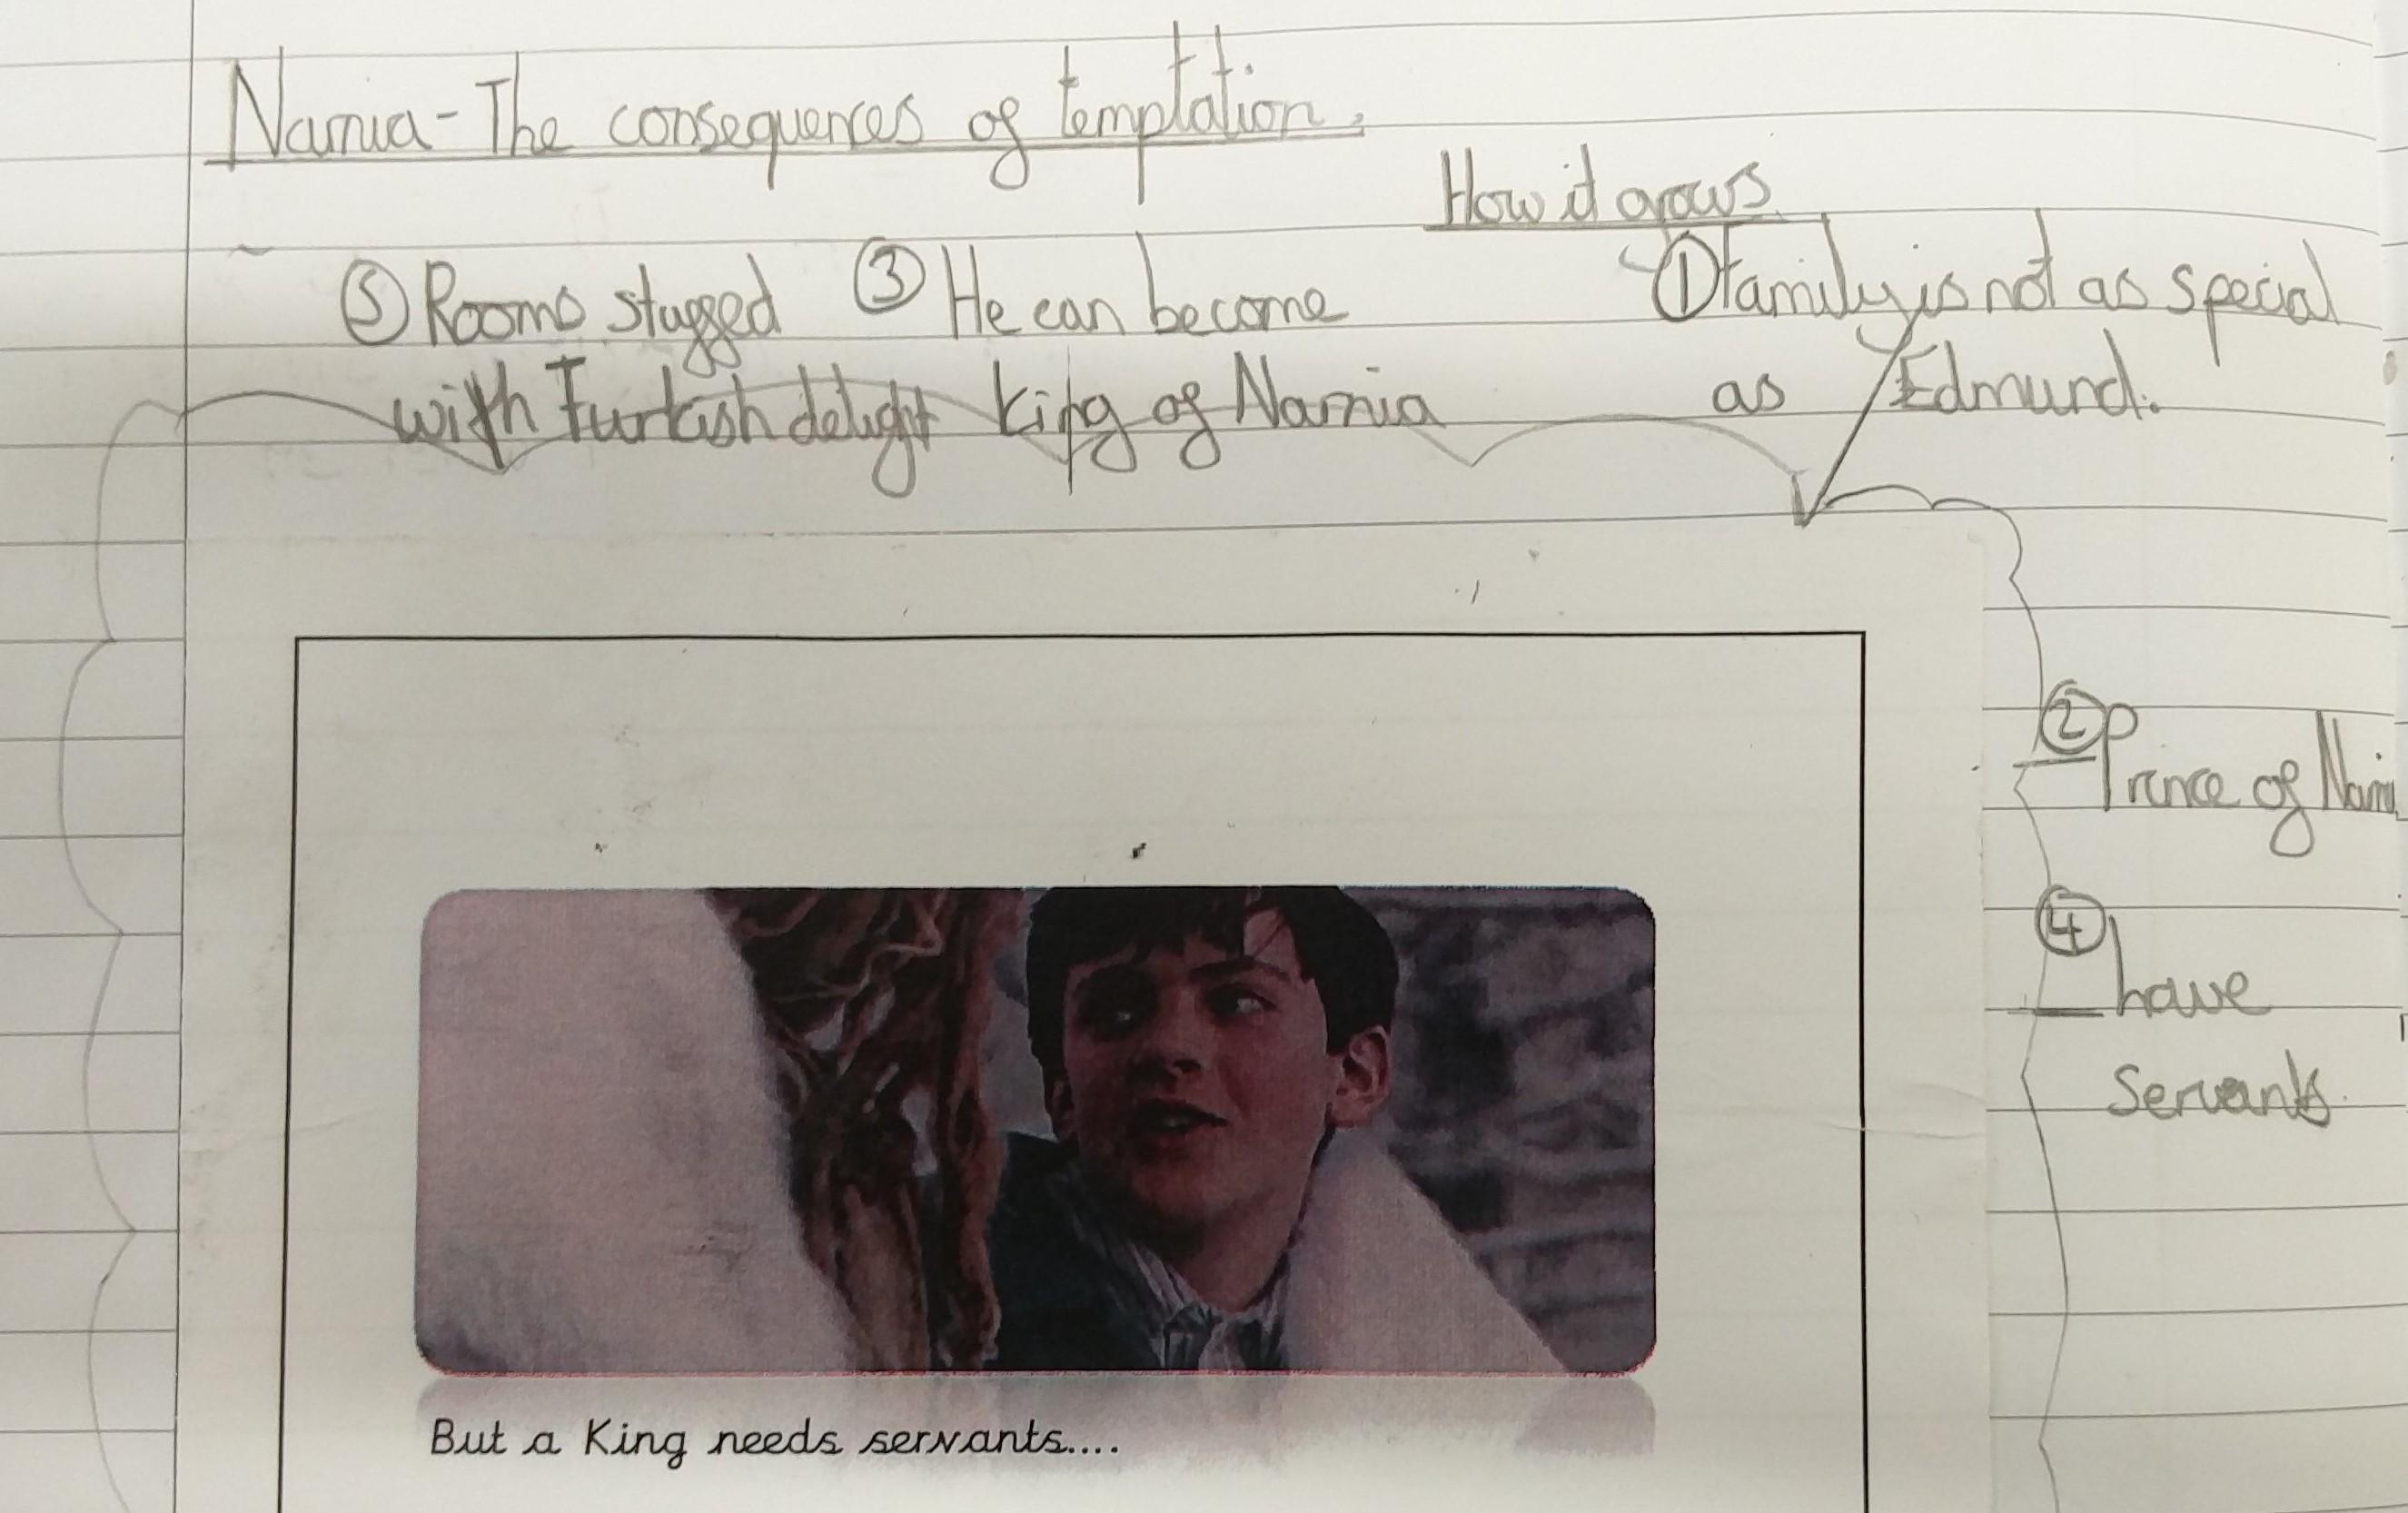 Narnia - The consequences of temptation.
How it grows.
⑤ Rooms stuffed
with Turkish delight
③ He can become
king of Narnia
① Family is not as special
as Edmund.
② Prince of
④ have
servants.
But a King needs servants....